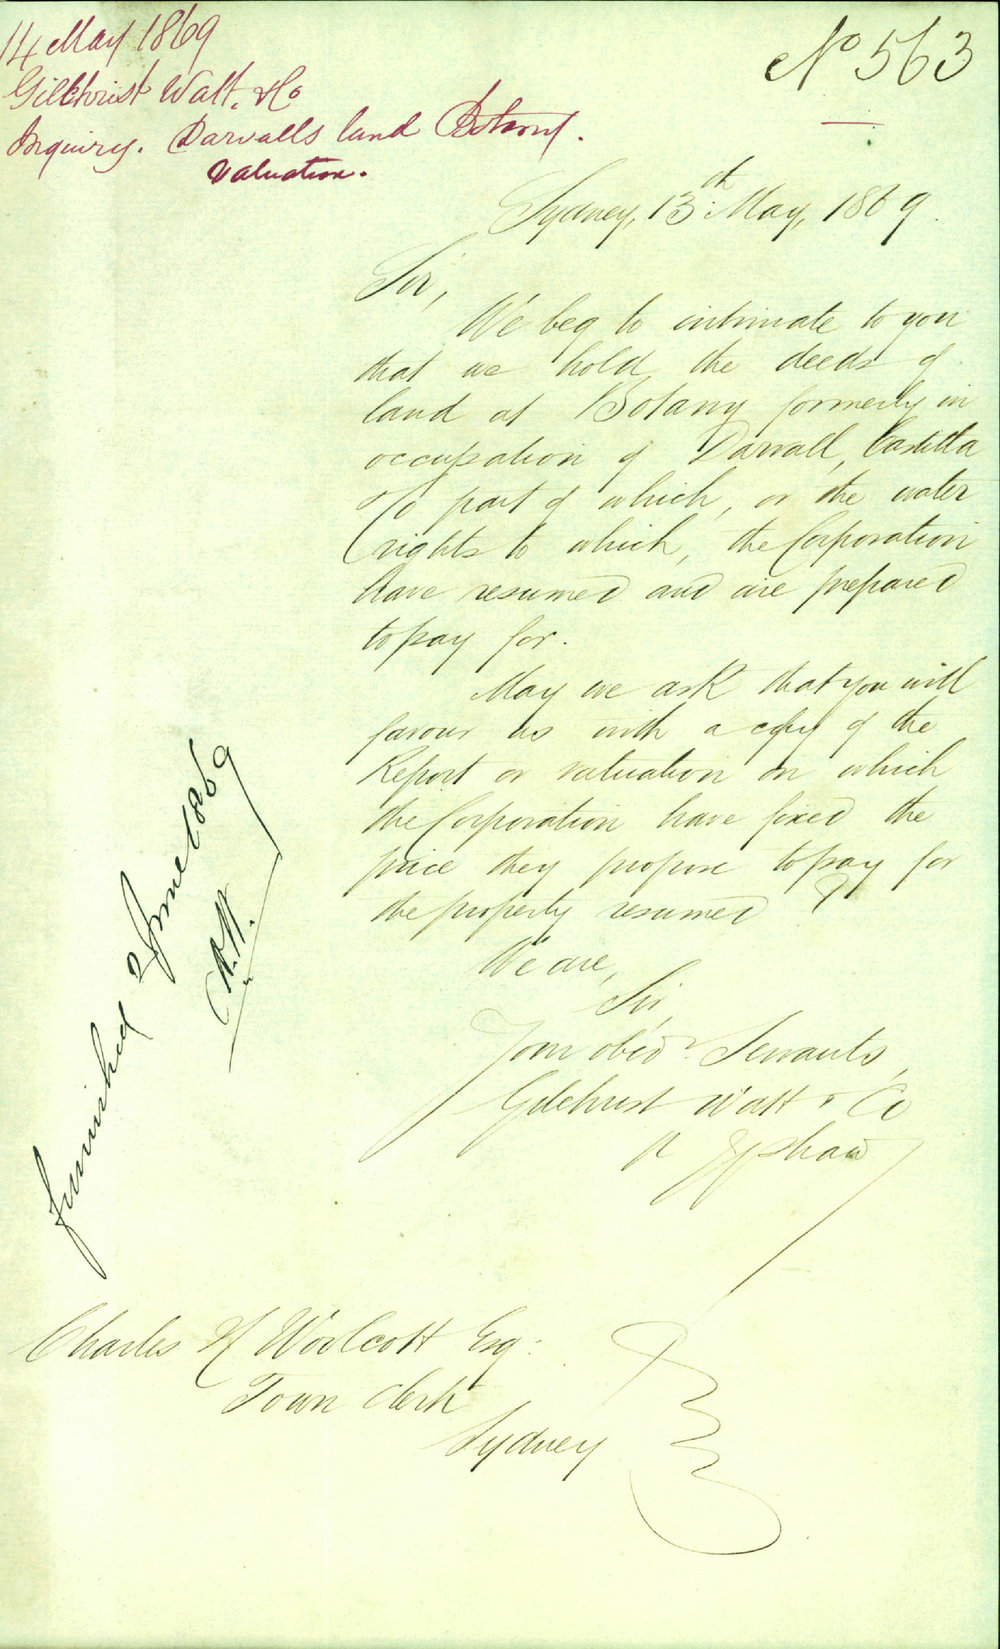 14 May 1869
Gilchrist Watt. & Co
Inquiry. Darvalls land Botany.
Valuation.
No 563
Sydney, 13th May, 1869.
Sir,
We beg to intimate to you
that we hold the deeds of
land at Botany formerly in
occupation of Darvall, Castilla
& Co part of which, or the water
rights to which, the Corporation
have resumed and are prepared
to pay for.
May we ask that you will
favour us with a copy of the
Report or valuation on which
the Corporation have fixed the
price they propose to pay for
the property resumed?
We are,
Sir,
Your obedt Servants,
Gilchrist Watt & Co
Shaw
furnished 2 June 1869
Charles H Woolcott Esq:
Town Clerk
Sydney